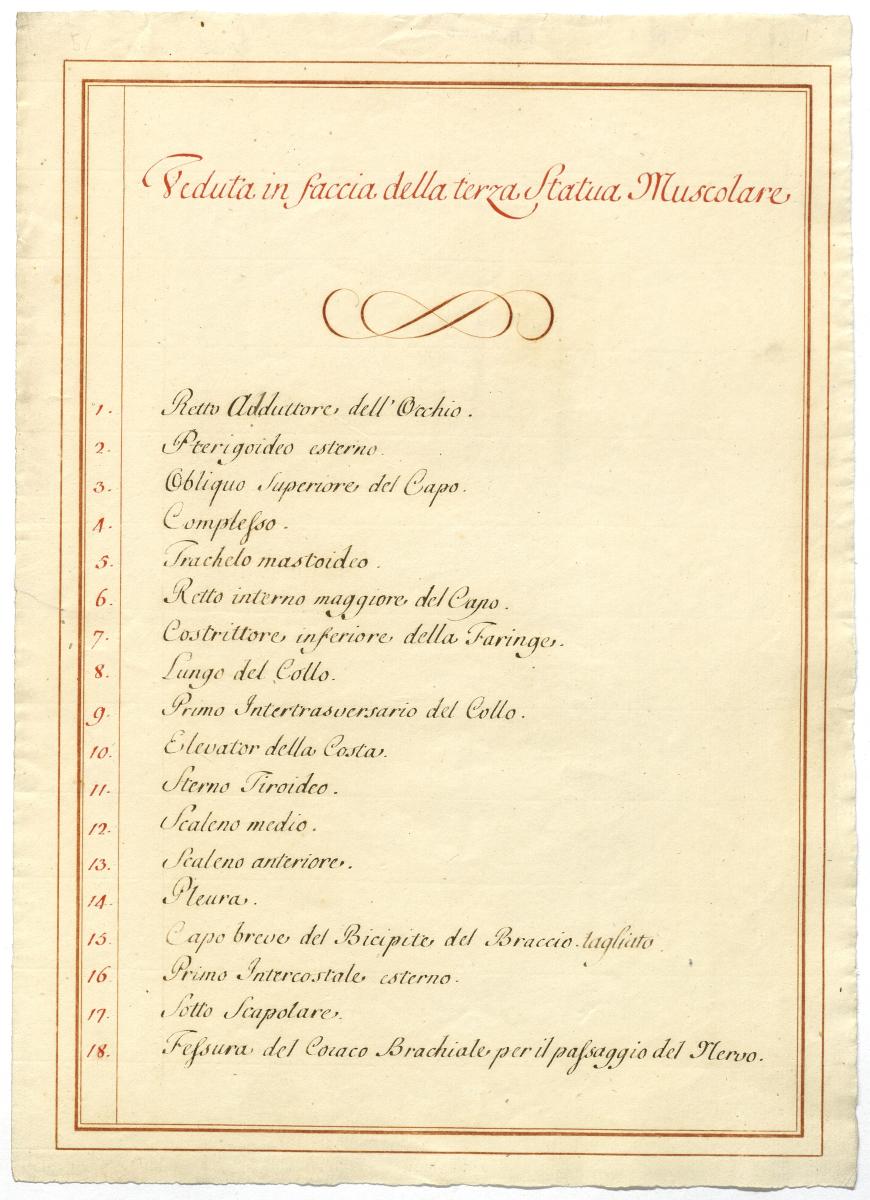 Veduta in faccia della terza Statua Muscolare
1. Retto Adduttore dell'Occhio.
2. Pterigoideo esterno.
3. Obliquo Superiore del Capo.
4. Complesso.
5. Trachelo mastoideo.
6. Retto interno maggiore del Capo.
7. Costrittore inferiore della Faringe.
8. Lungo del Collo.
9. Primo Intertrasversario del Collo.
10. Elevator della Costa.
11. Sterno Tiroideo.
12. Scaleno medio.
13. Scaleno anteriore.
14. Pleura.
15. Capo breve del Bicipite del Braccio tagliato.
16. Primo Intercostale esterno.
17. Sotto Scapolare.
18. Fessura del Coraco Brachiale per il passaggio del Nervo.